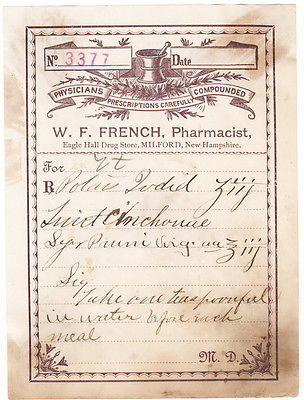 No. 3377 Date
PHYSICIANS PRESCRIPTIONS CAREFULLY COMPOUNDED
W. F. FRENCH, Pharmacist,
Eagle Hall Drug Store, MILFORD, New Hampshire.
For
R Potass Iodid ʒiij
Tinct Cinchonae
Syr Pruni Virg aa ℥iij
Sig
Take one teaspoonful
in water before each
meal
M. D.